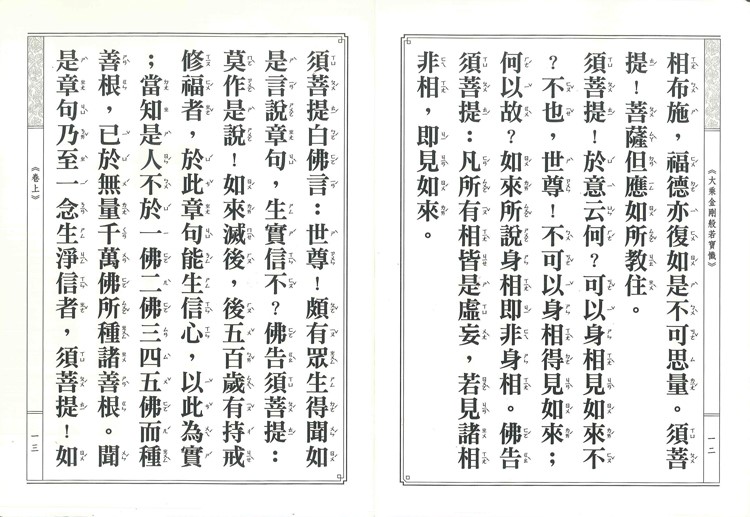 《大乘金剛般若寶懺》
一二
相布施，福德亦復如是不可思量。須菩
提！菩薩但應如所教住。
須菩提！於意云何？可以身相見如來不
？不也，世尊！不可以身相得見如來；
何以故？如來所說身相即非身相。佛告
須菩提：凡所有相皆是虛妄，若見諸相
非相，即見如來。
須菩提白佛言：世尊！頗有眾生得聞如
是言說章句，生實信不？佛告須菩提：
莫作是說！如來滅後，後五百歲有持戒
修福者，於此章句能生信心，以此為實
；當知是人不於一佛二佛三四五佛而種
善根，已於無量千萬佛所種諸善根。聞
是章句乃至一念生淨信者，須菩提！如
《卷上》
一三